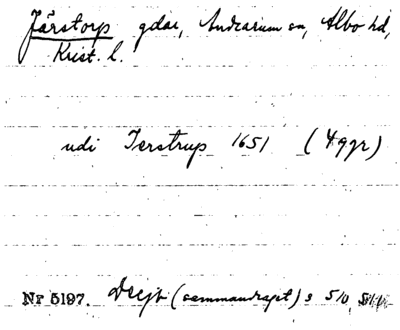 Järstorp gdar, Andrarum sn, Albo hd,
Krist. l.
udi Jerstrup 1651 (4 ggr)
Nr 5197. (sammandraget) s 510